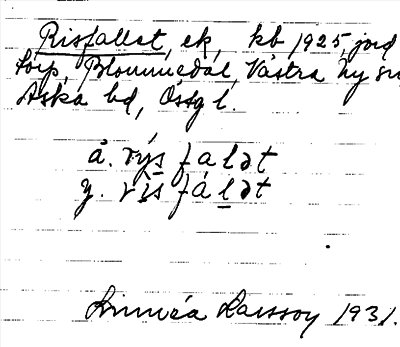 Risfallet, ek, kb 1925, jord
torp, Blommedal, Västra Ny sn,
Aska hd, Östg l.
å. rýs falət
y. rìs fálət
Linnéa Larsson 1931.